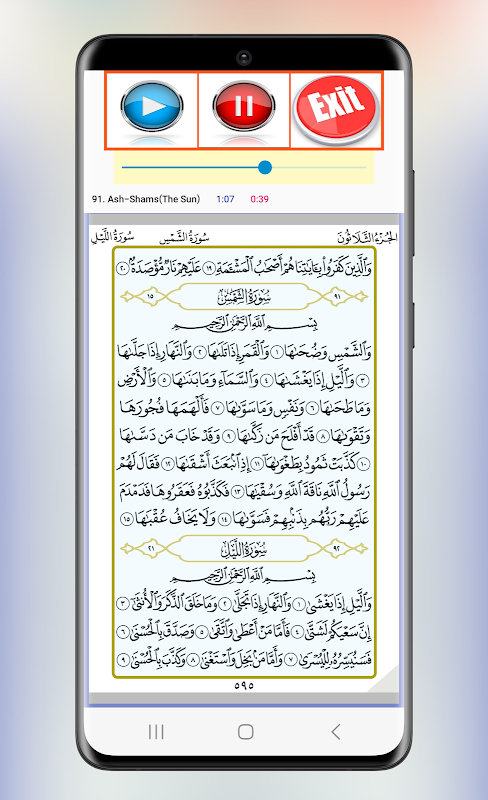 Exit
91. Ash-Shams(The Sun) 1:07 0:39
الجزء الثلاثون سورة الشمس سورة الليل
وَٱلَّذِينَ كَفَرُوا۟ بِـَٔايَـٰتِنَا هُمْ أَصْحَـٰبُ ٱلْمَشْـَٔمَةِ ١٩ عَلَيْهِمْ نَارٌ مُّؤْصَدَةٌۢ ٢٠
٩١ سُورَةُ الشَّمْسِ ١٥
بِسْمِ ٱللَّهِ ٱلرَّحْمَـٰنِ ٱلرَّحِيمِ
وَٱلشَّمْسِ وَضُحَىٰهَا ١ وَٱلْقَمَرِ إِذَا تَلَىٰهَا ٢ وَٱلنَّهَارِ إِذَا جَلَّىٰهَا
٣ وَٱلَّيْلِ إِذَا يَغْشَىٰهَا ٤ وَٱلسَّمَآءِ وَمَا بَنَىٰهَا ٥ وَٱلْأَرْضِ
وَمَا طَحَىٰهَا ٦ وَنَفْسٍ وَمَا سَوَّىٰهَا ٧ فَأَلْهَمَهَا فُجُورَهَا
وَتَقْوَىٰهَا ٨ قَدْ أَفْلَحَ مَن زَكَّىٰهَا ٩ وَقَدْ خَابَ مَن دَسَّىٰهَا
١٠ كَذَّبَتْ ثَمُودُ بِطَغْوَىٰهَآ ١١ إِذِ ٱنۢبَعَثَ أَشْقَىٰهَا ١٢ فَقَالَ لَهُمْ
رَسُولُ ٱللَّهِ نَاقَةَ ٱللَّهِ وَسُقْيَـٰهَا ١٣ فَكَذَّبُوهُ فَعَقَرُوهَا فَدَمْدَمَ
عَلَيْهِمْ رَبُّهُم بِذَنۢبِهِمْ فَسَوَّىٰهَا ١٤ وَلَا يَخَافُ عُقْبَـٰهَا ١٥
٩٢ سُورَةُ اللَّيْلِ ٢١
بِسْمِ ٱللَّهِ ٱلرَّحْمَـٰنِ ٱلرَّحِيمِ
وَٱلَّيْلِ إِذَا يَغْشَىٰ ١ وَٱلنَّهَارِ إِذَا تَجَلَّىٰ ٢ وَمَا خَلَقَ ٱلذَّكَرَ وَٱلْأُنثَىٰٓ ٣
إِنَّ سَعْيَكُمْ لَشَتَّىٰ ٤ فَأَمَّا مَنْ أَعْطَىٰ وَٱتَّقَىٰ ٥ وَصَدَّقَ بِٱلْحُسْنَىٰ ٦
فَسَنُيَسِّرُهُۥ لِلْيُسْرَىٰ ٧ وَأَمَّا مَنۢ بَخِلَ وَٱسْتَغْنَىٰ ٨ وَكَذَّبَ بِٱلْحُسْنَىٰ ٩
٥٩٥